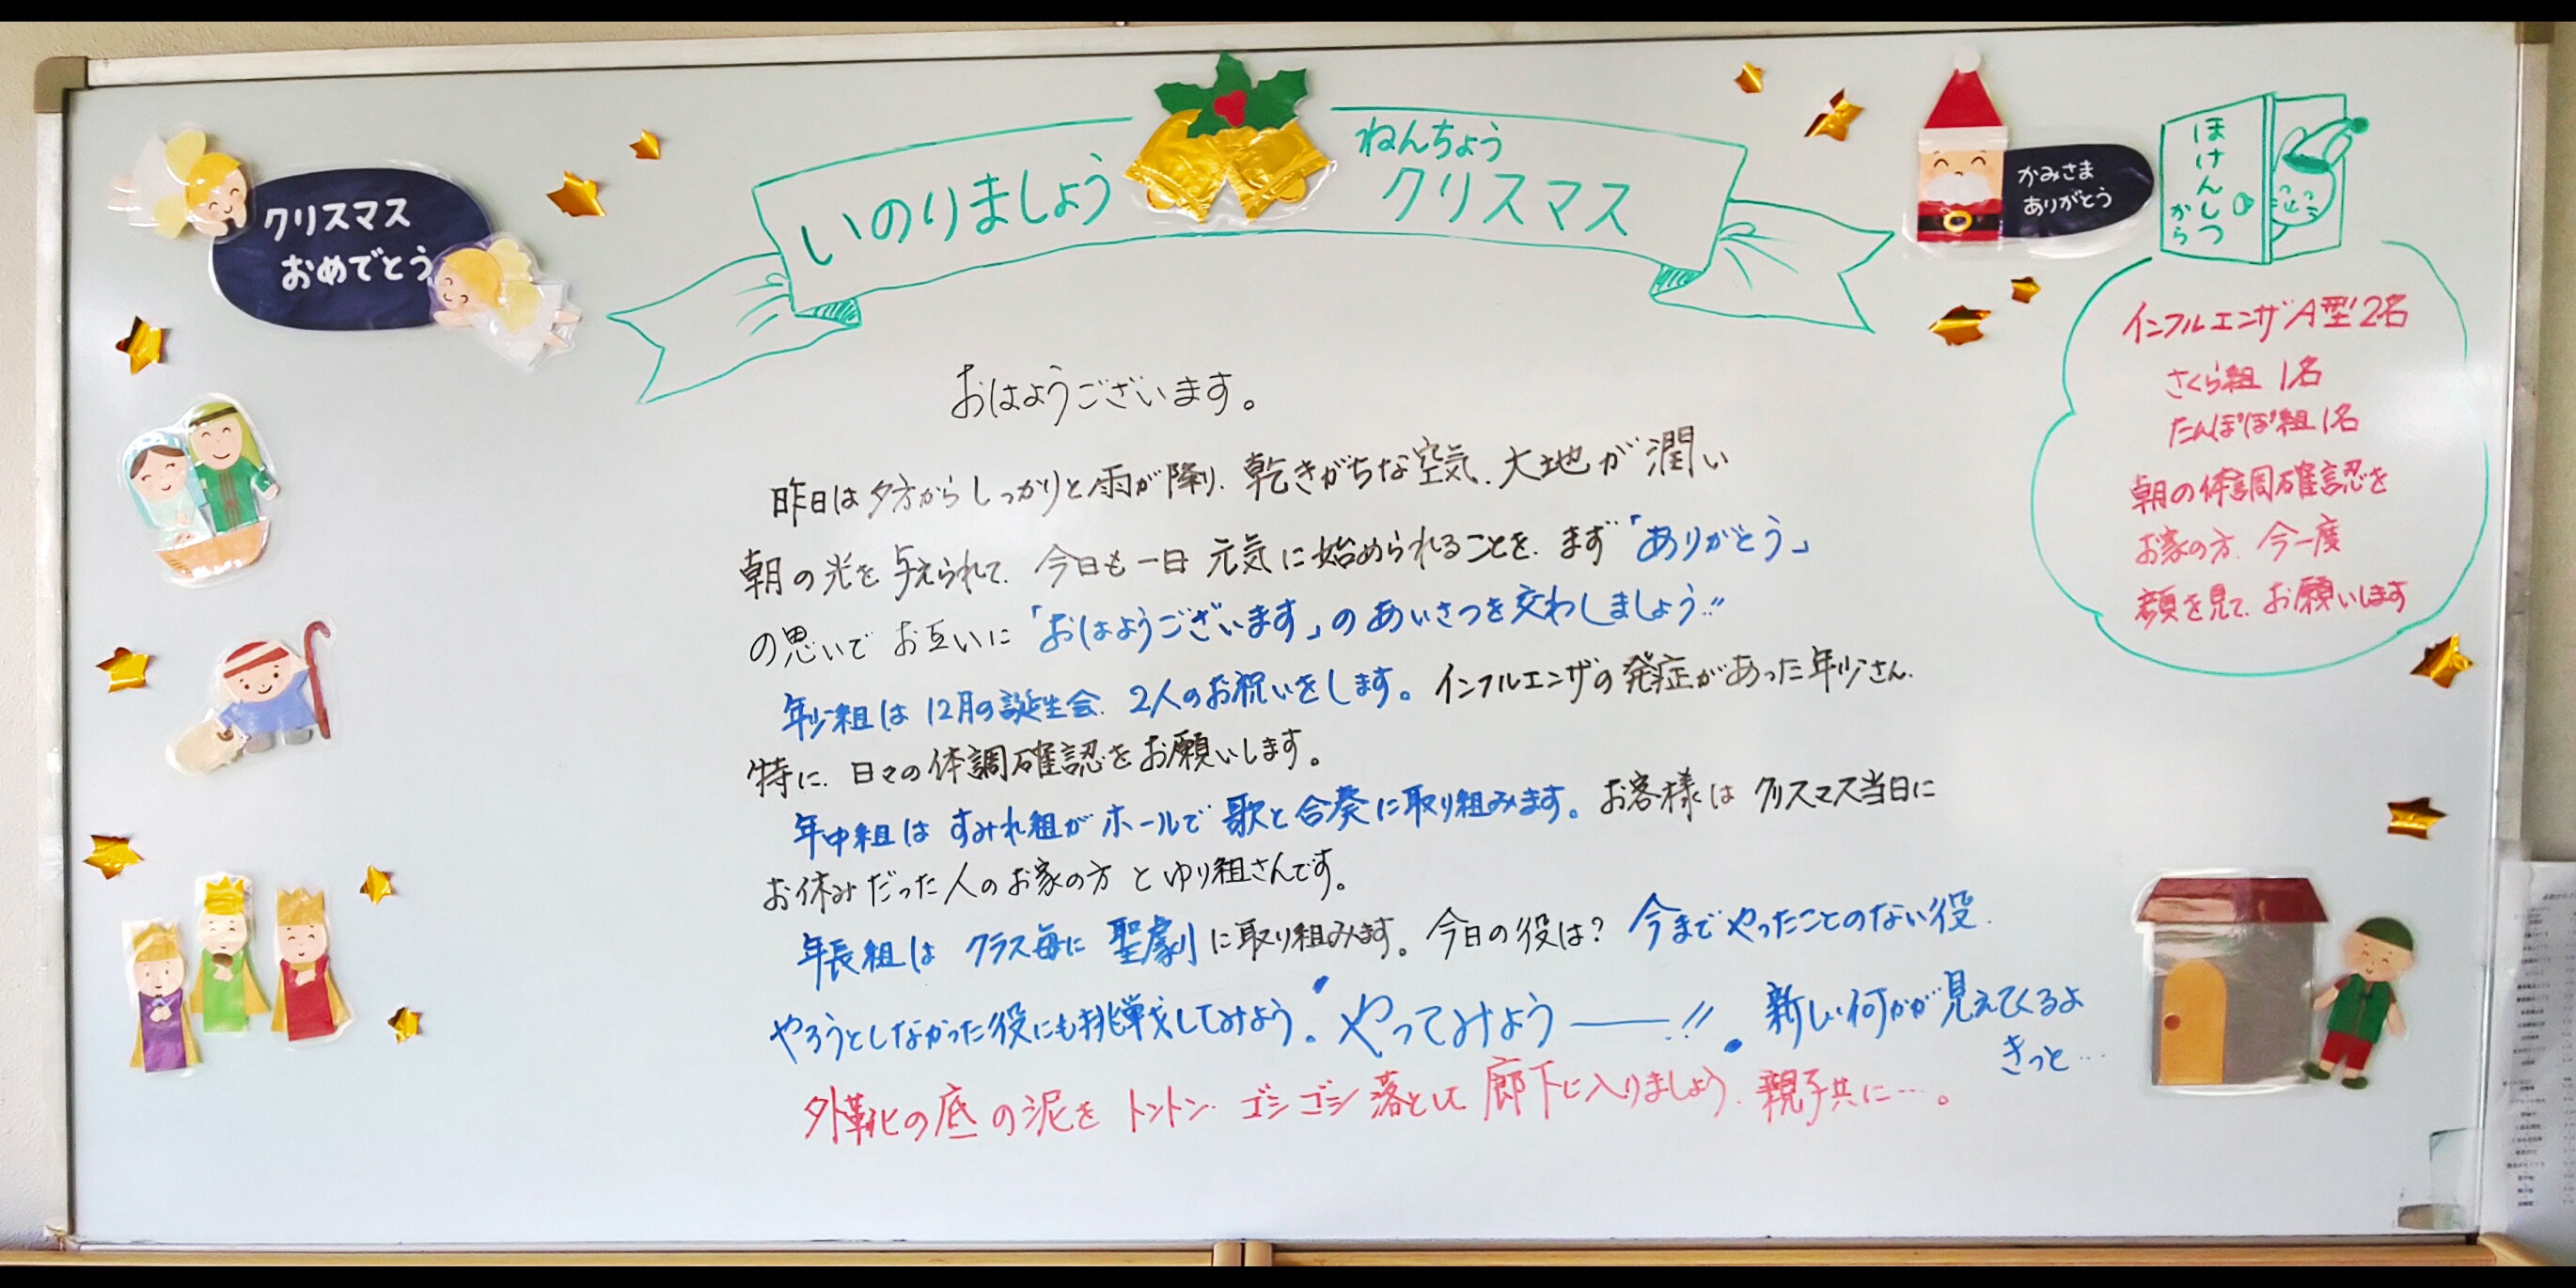 クリスマス
おめでとう
いのりましょう
ねんちょう
クリスマス
かみさま
ありがとう
ほけんしつ
から
インフルエンザA型2名
さくら組 1名
たんぽぽ組1名
朝の体調確認を
お家の方、今一度
顔を見て、お願いします
おはようございます。
昨日は夕方からしっかりと雨が降り、乾きがちな空気、大地が潤い
朝の光を与えられて、今日も一日 元気に始められることを、まず「ありがとう」
の思いで お互いに「おはようございます」のあいさつを交わしましょう!!
年少組は 12月の誕生会、2人のお祝いをします。インフルエンザの発症があった年少さん、
特に、日々の体調確認をお願いします。
年中組は すみれ組が ホールで 歌と合奏に取り組みます。お客様は クリスマス当日に
お休みだった人のお家の方 と ゆり組さんです。
年長組は クラス毎に 聖劇に取り組みます。今日の役は? 今までやったことのない役、
やろうとしなかった役にも挑戦してみよう。やってみよう――!! 新しい何かが見えてくるよ
きっと…
外靴の底の泥を トントン、ゴシゴシ 落として 廊下に入りましょう、親子共に…。